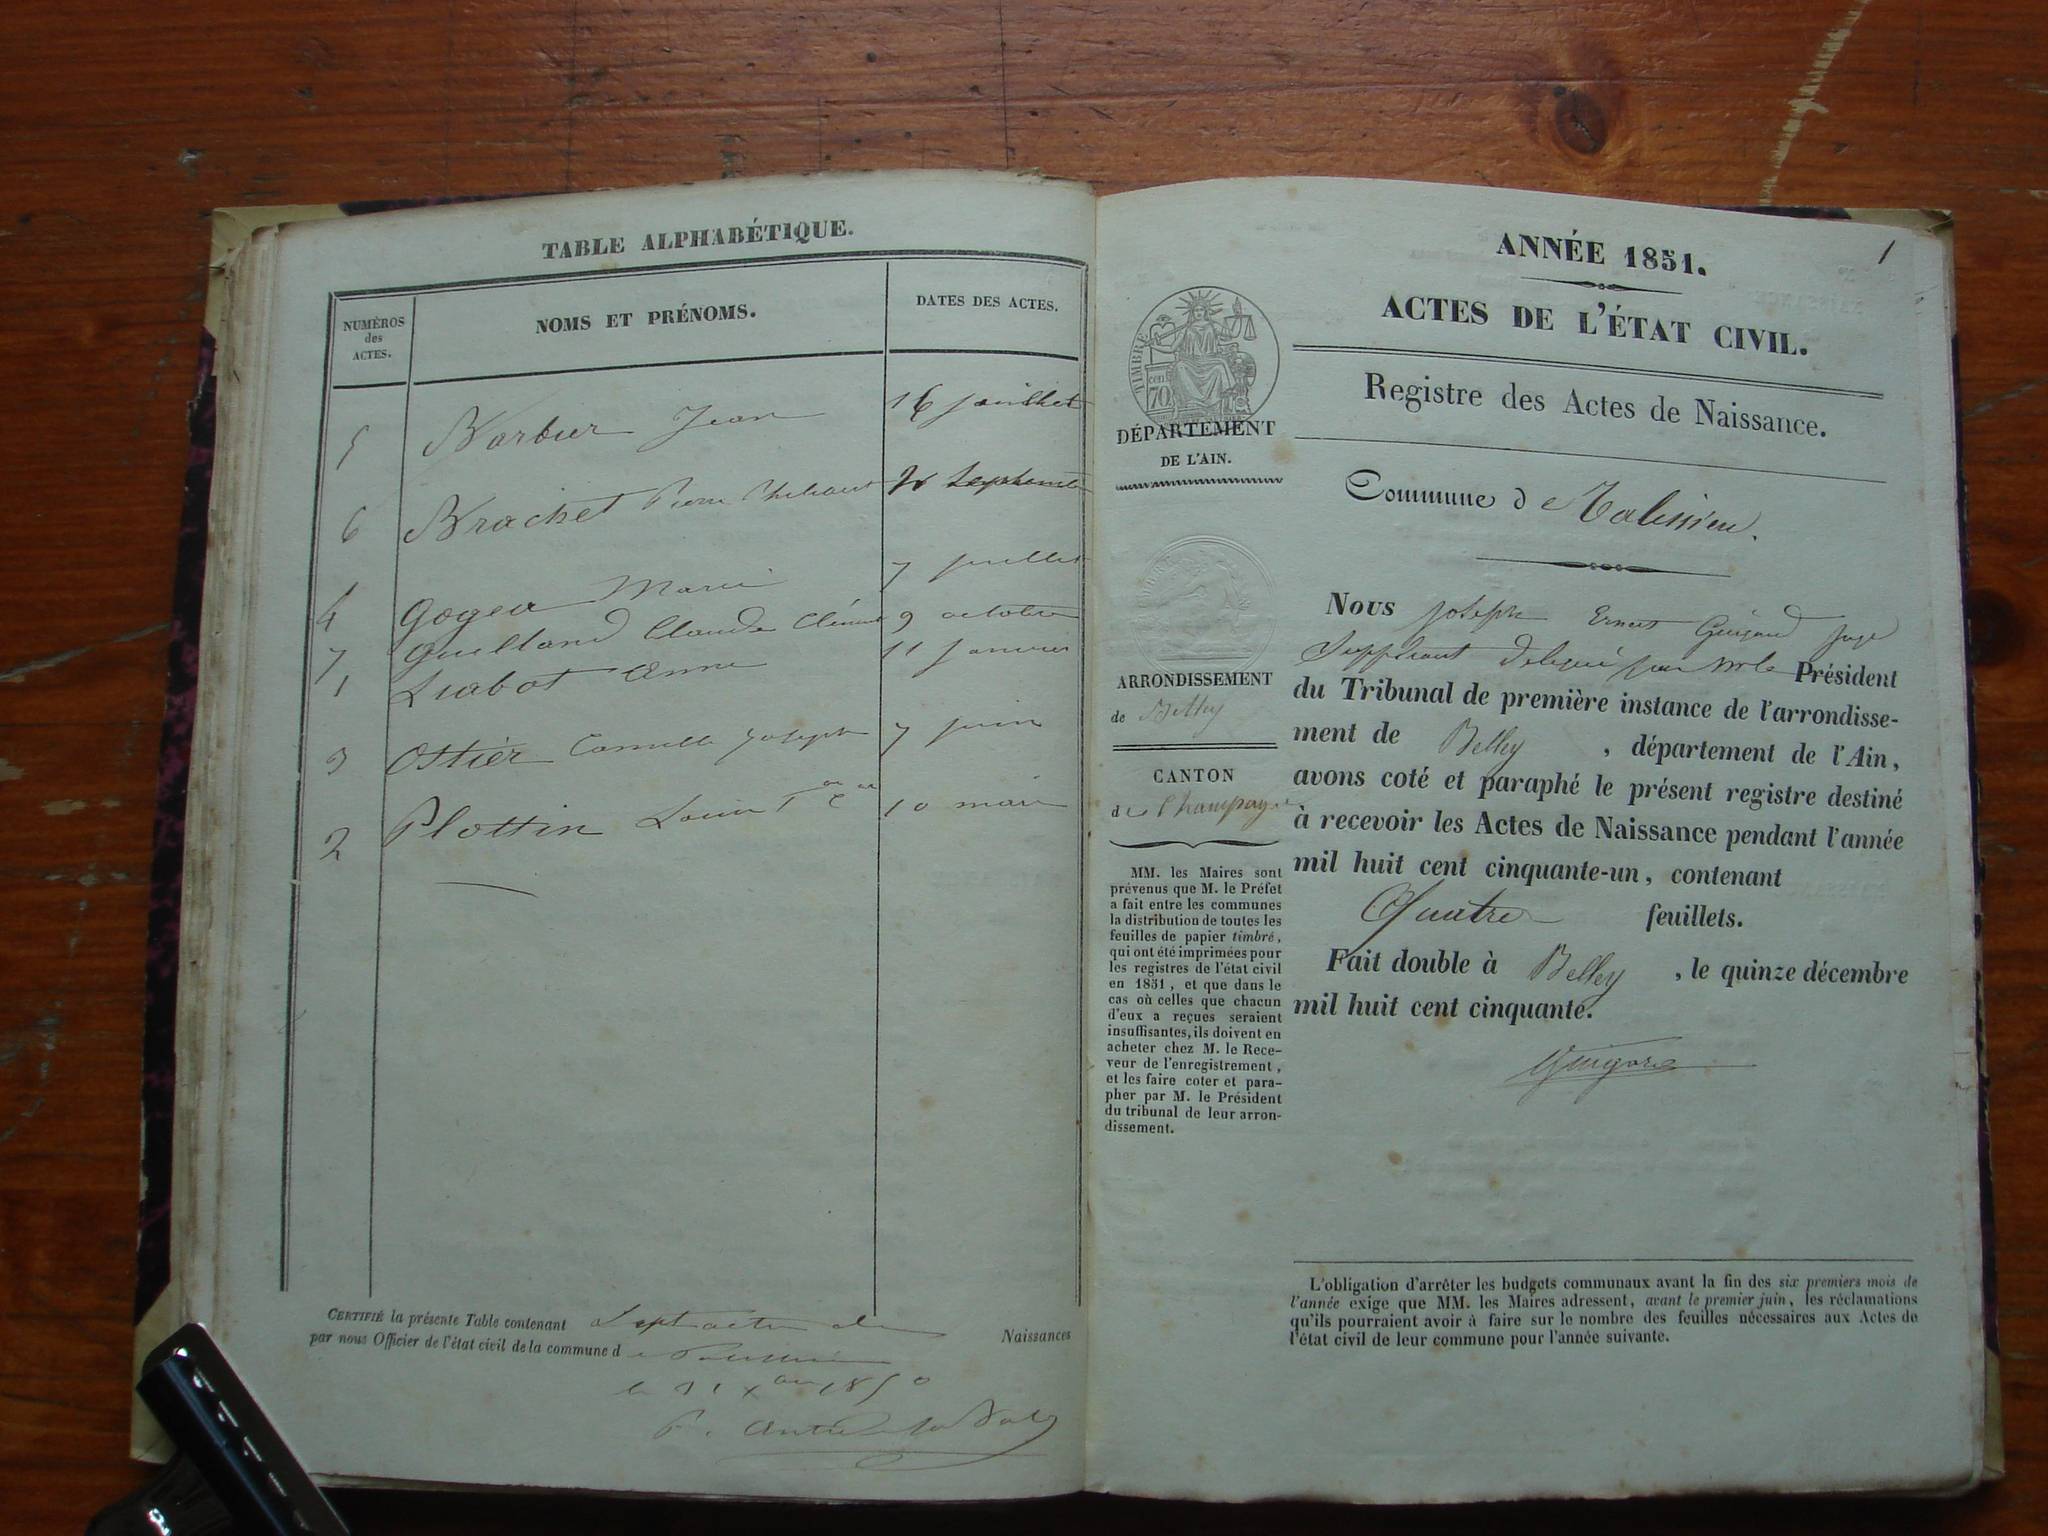 TABLE ALPHABÉTIQUE.
NUMÉROS
des
ACTES.
NOMS ET PRÉNOMS.
DATES DES ACTES.
5 Barbier Jean 16 juillet
6 Brachet Pierre Septembre
4 Marie 7 juillet
7 Guilland Claude Clément 9 octobre
1 Liabot Anne 11 janvier
3 Ostier Camille Joseph 7 juin
2 Plottin Louis 10 mars
CERTIFIÉ la présente Table contenant Sept actes de Naissances
par nous Officier de l'état civil de la commune d
le 31 Xbre 1850
1
ANNÉE 1851.
ACTES DE L'ÉTAT CIVIL.
Registre des Actes de Naissance.
TIMBRE
cen
70
DÉPARTEMENT
DE L'AIN.
Commune de Talissieu.
ARRONDISSEMENT
de Belley
CANTON
de Champagne
MM. les Maires sont
prévenus que M. le Préfet
a fait entre les communes
la distribution de toutes les
feuilles de papier timbré,
qui ont été imprimées pour
les registres de l'état civil
en 1851, et que dans le
cas où celles que chacun
d'eux a reçues seraient
insuffisantes, ils doivent en
acheter chez M. le Rece-
veur de l'enregistrement,
et les faire coter et para-
pher par M. le Président
du tribunal de leur arron-
dissement.
Nous Joseph Ernest Guigard juge
Suppléant délégué par Mr le Président
du Tribunal de première instance de l'arrondisse-
ment de Belley, département de l'Ain,
avons coté et paraphé le présent registre destiné
à recevoir les Actes de Naissance pendant l'année
mil huit cent cinquante-un, contenant
Quatre feuillets.
Fait double à Belley, le quinze décembre
mil huit cent cinquante.
Guigard
L'obligation d'arrêter les budgets communaux avant la fin des six premiers mois de
l'année exige que MM. les Maires adressent, avant le premier juin, les réclamations
qu'ils pourraient avoir à faire sur le nombre des feuilles nécessaires aux Actes de
l'état civil de leur commune pour l'année suivante.